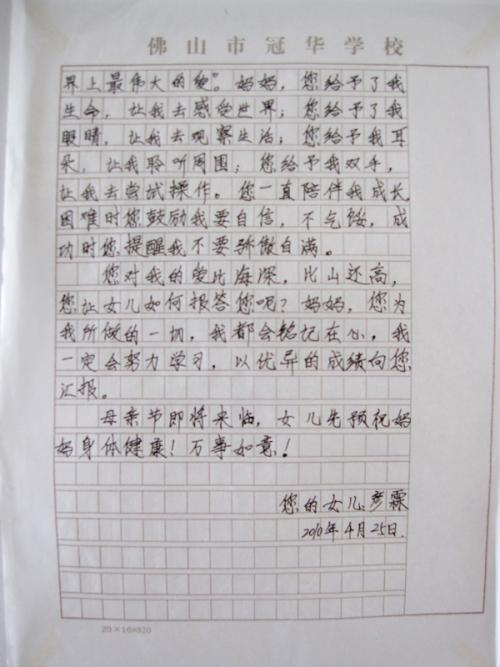 佛山市冠华学校
界上最伟大的爱”。妈妈，您给予了我
生命，让我去感受世界；您给予了我
眼睛，让我去观察生活；您给予我耳
朵，让我聆听周围；您给予我双手，
让我去尝试操作。您一直陪伴我成长，
困难时您鼓励我要自信，不气馁，成
功时您提醒我不要骄傲自满。
您对我的爱比海深，比山还高，
您让女儿如何报答您呢？妈妈，您为
我所做的一切，我都会铭记在心，我
一定会努力学习，以优异的成绩向您
汇报。
母亲节即将来临，女儿先预祝妈
妈身体健康！万事如意！
您的女儿彦霖
2010年4月25日
20×16=320